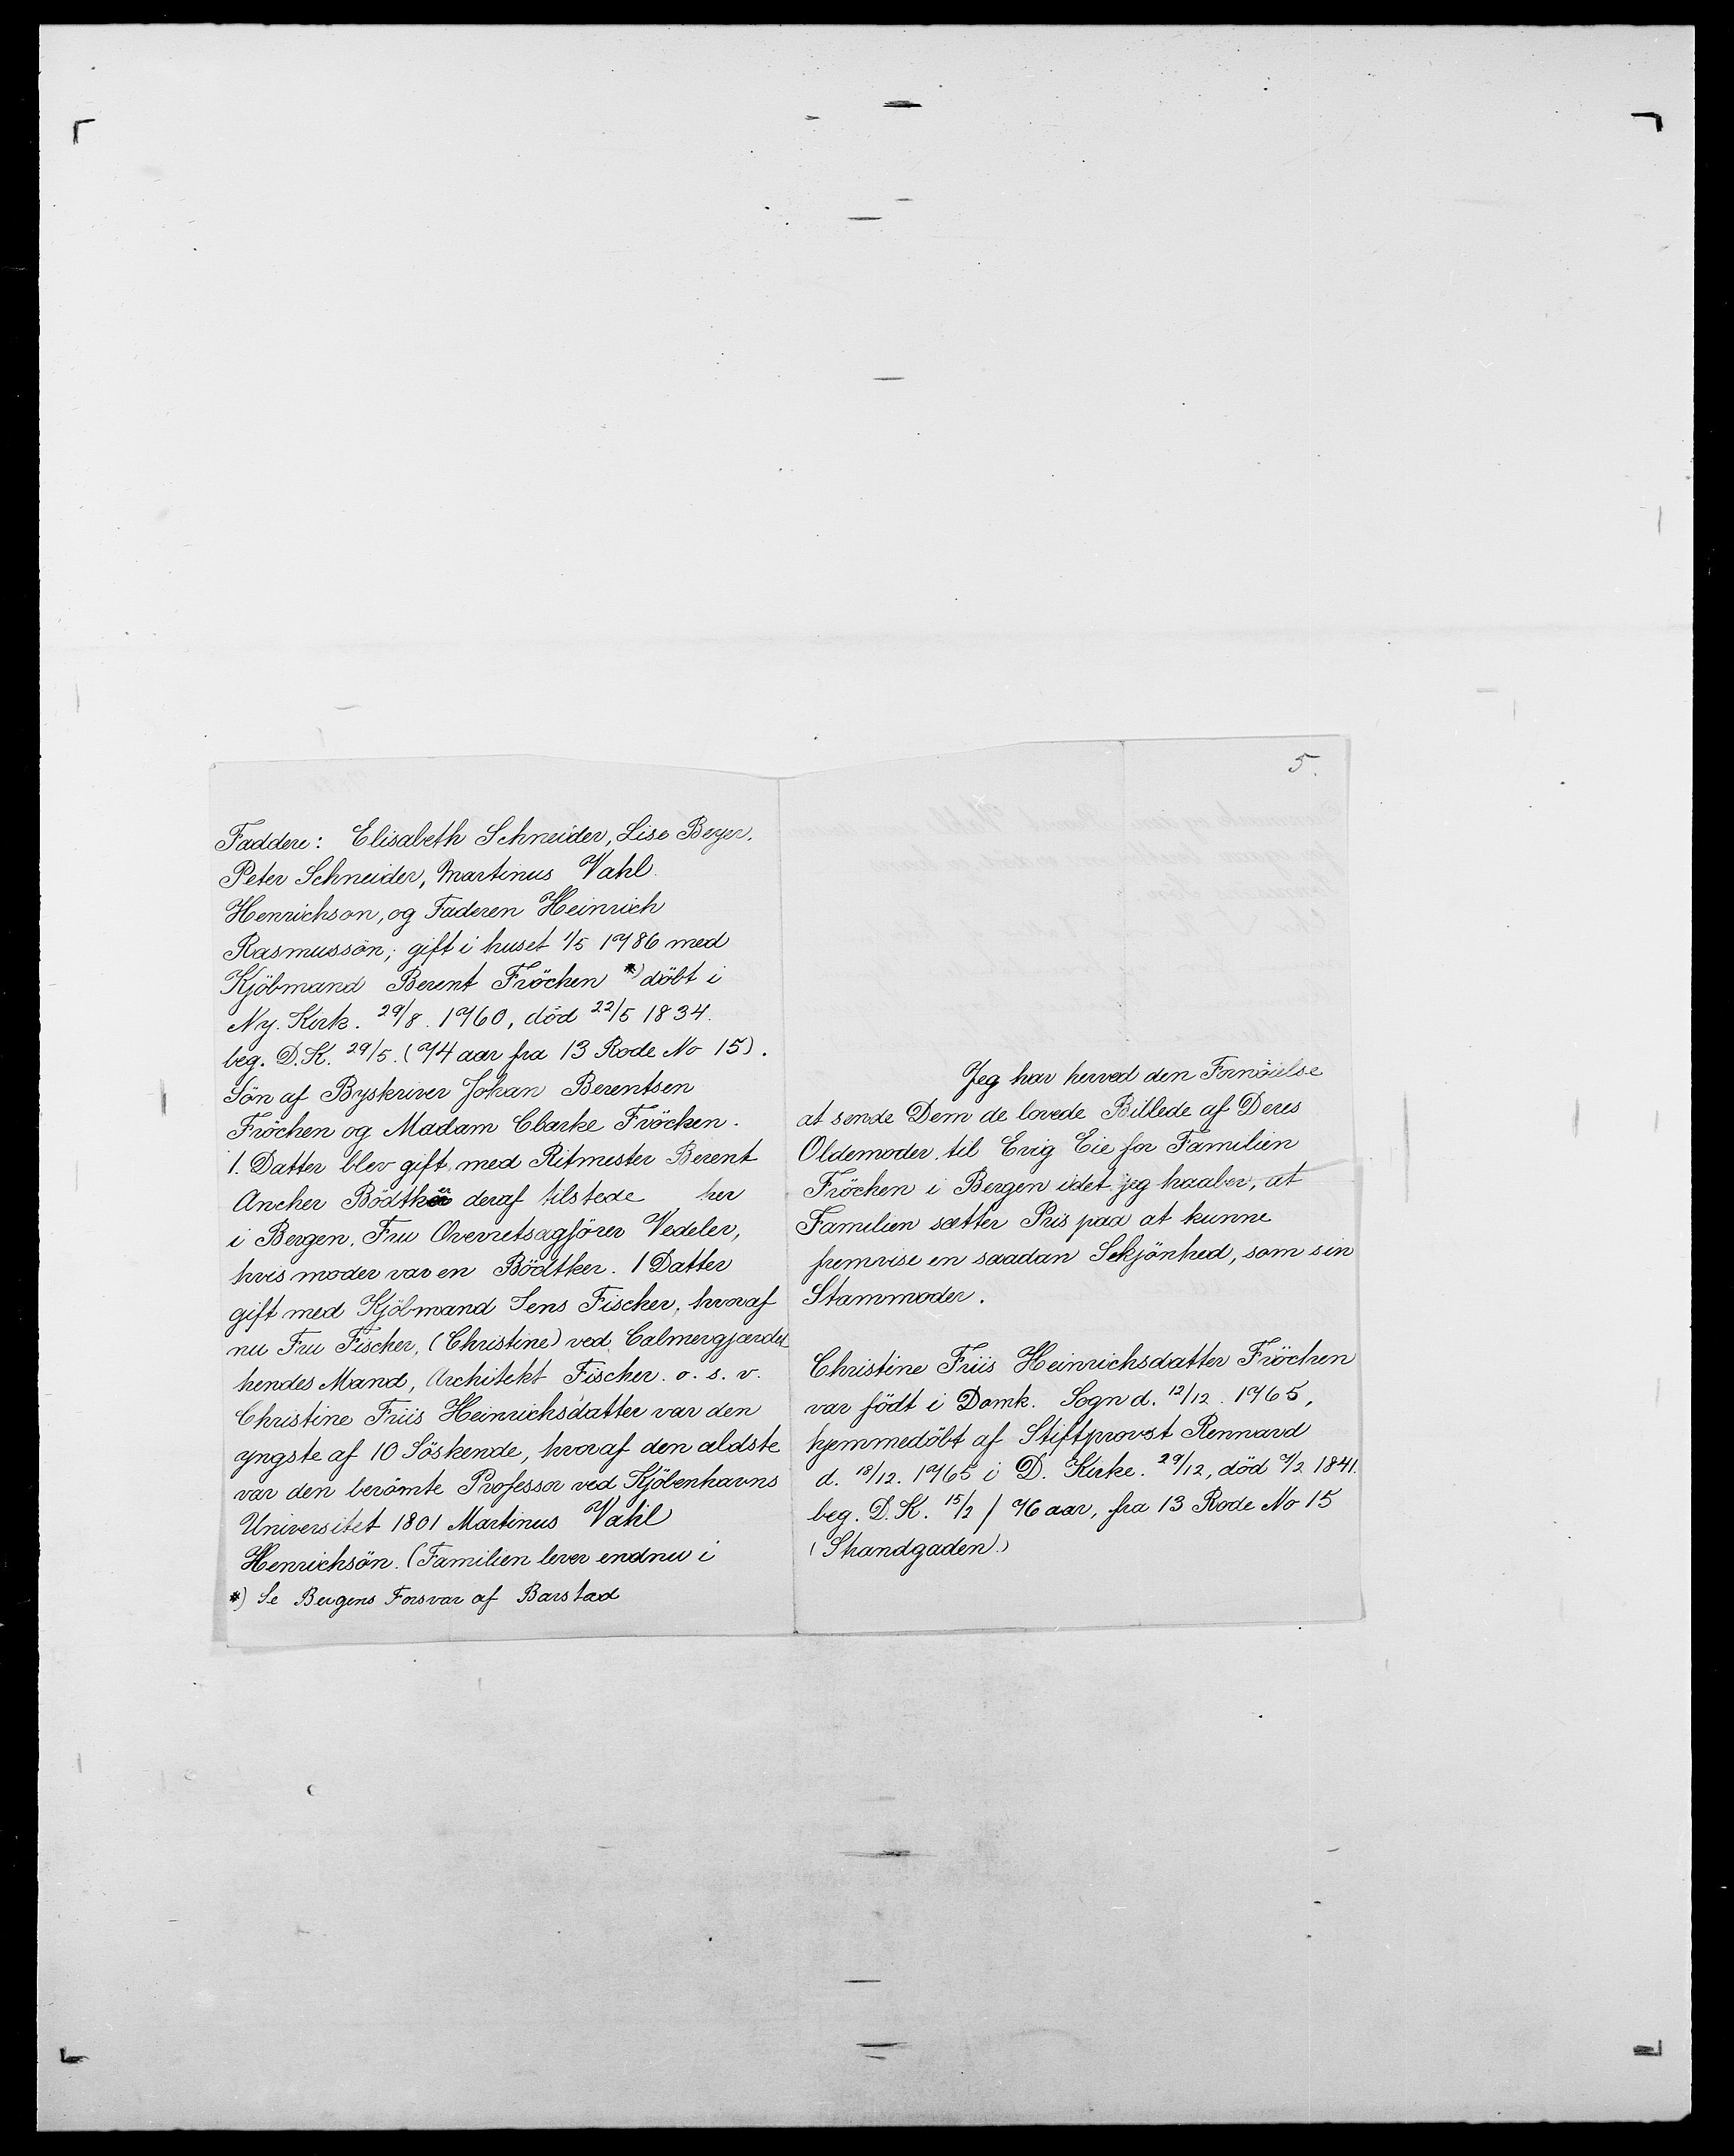 Faddere: Elisabeth Schneider, Lise Beyer,
Peter Schneider, Martinus Vahl
Henrichson, og Faderen Heinrich
Rasmussön; gift i huset 1/5 1786 med
Kjöbmand Berent Fröchen *) döbt i
Ny. Kirk. 29/8. 1760, död 22/5 1834.
beg. D.K. 29/5. (74 aar fra 13 Rode No 15).
Sön af Byskriver Johan Berentsen
Fröchen og Madam Clarke Fröchen.
1. Datter blev gift med Ritmester Berent
Ancher Bödtker deraf tilstede her
i Bergen. Fru Overretsagförer Vedeler,
hvis moder var en Bödtker. 1 Datter
gift med Kjöbmand Jens Fischer, hvoraf
nu Fru Fischer, (Christine) ved Calmergjærdet
hendes Mand, Architekt Fischer. o. s. v.
Christine Friis Heinrichsdatter var den
yngste af 10 Söskende, hvoraf den ældste
var den berömte Professor ved Kjöbenhavns
Universitet 1801 Martinus Vahl
Henrichsön. (Familien lever endnu i
*) Se Bergens Forsvar af Barstad
5.
Jeg har herved den Fornöielse
at sende Dem de lovede Billede af Deres
Oldemoder til Evig Eie for Familien
Fröchen i Bergen idet jeg haaber, at
Familien sætter Pris paa at kunne
fremvise en saadan Sekjönhed, som sin
Stammoder.
Christine Friis Heinrichsdatter Fröchen
var födt i Domk. Sogn d. 12/12. 1765,
hjemmedöbt af Stiftprovst Rennard
d. 18/12. 1765 i D. Kirke. 29/12, död 7/2 1841.
beg. D.K. 15/2 / 76 aar, fra 13 Rode No 15
(Strandgaden.)